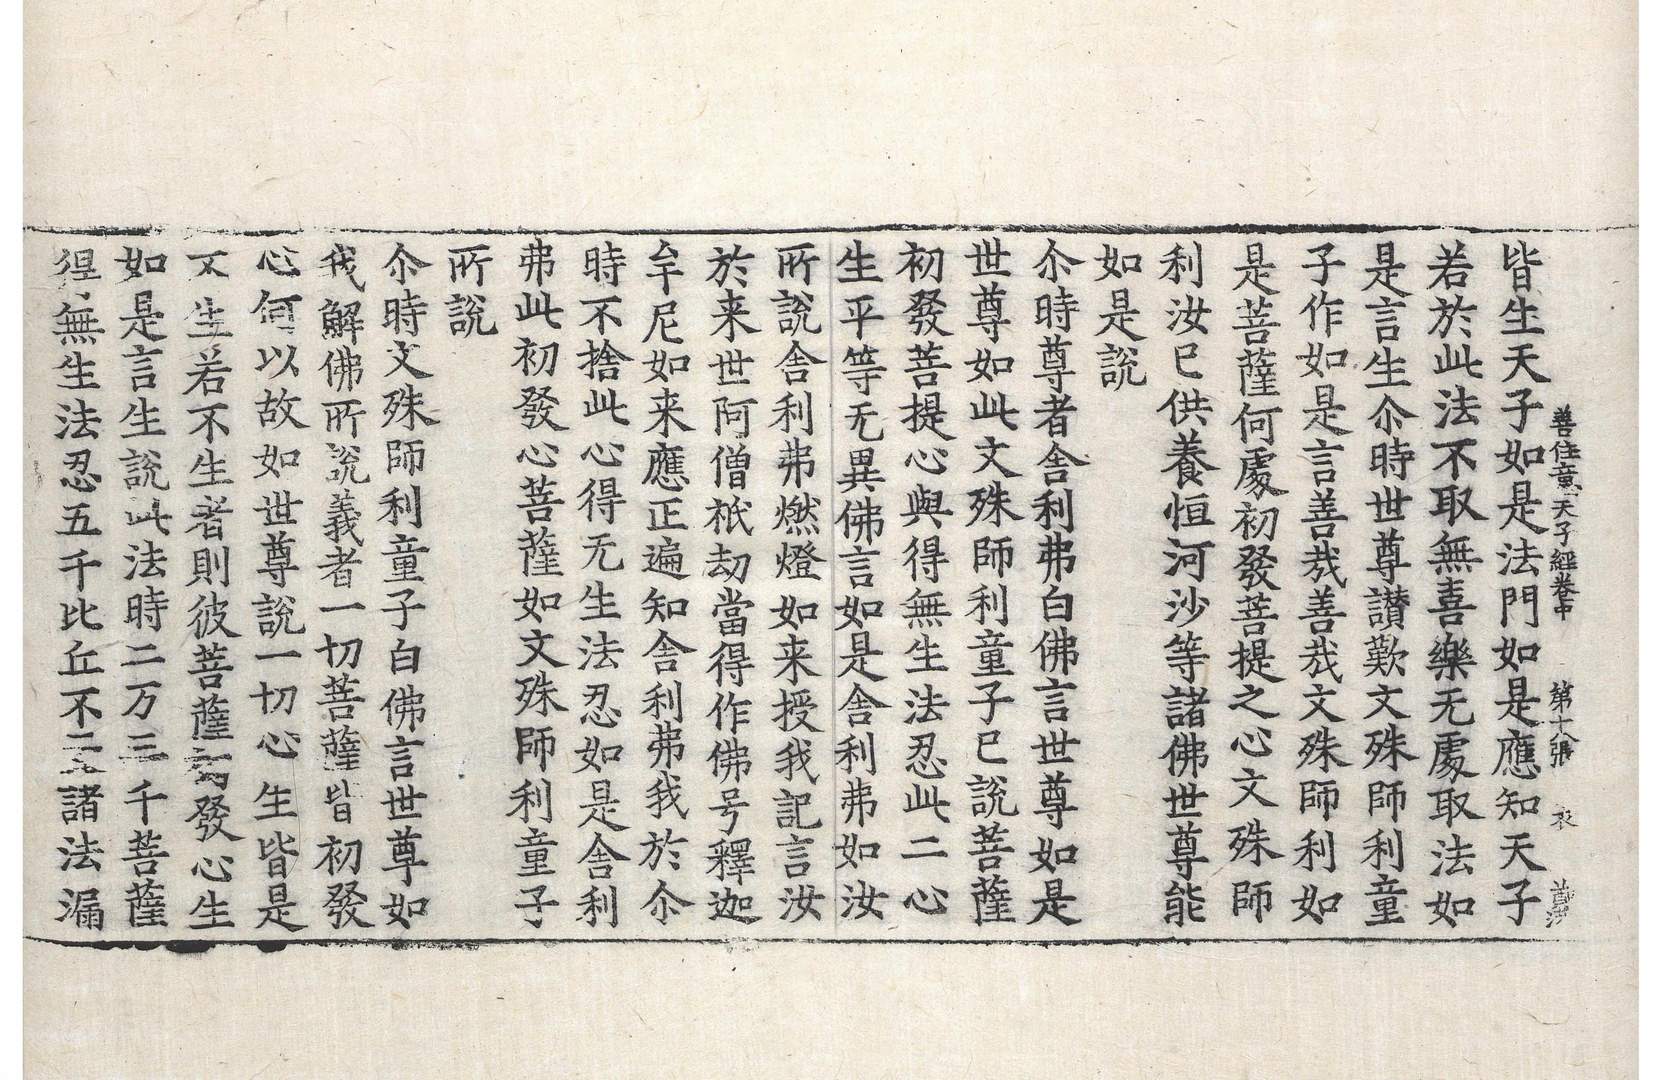 善住意天子経卷中 第十八張 衣
皆生天子如是法門如是應知天子
若於此法不取無喜樂无處取法如
是言生尒時世尊讃歎文殊師利童
子作如是言善㢤善㢤文殊師利如
是菩薩何處初發菩提之心文殊師
利汝已供養恒河沙等諸佛世尊能
如是說
尒時尊者舎利弗白佛言世尊如是
世尊如此文殊師利童子已說菩薩
初發菩提心與得無生法忍此二心
生平等无異佛言如是舎利弗如汝
所說舎利弗燃燈如来授我記言汝
於来世阿僧祇劫當得作佛号釋迦
牟尼如来應正遍知舎利弗我於尒
時不捨此心得无生法忍如是舎利
弗此初發心菩薩如文殊師利童子
所說
尒時文殊師利童子白佛言世尊如
我解佛所說義者一切菩薩皆初發
心何以故如世尊說一切心生皆是
不生若不生者則彼菩薩初發心生
如是言生說此法時二万三千菩薩
得無生法忍五千比丘不二諸法漏